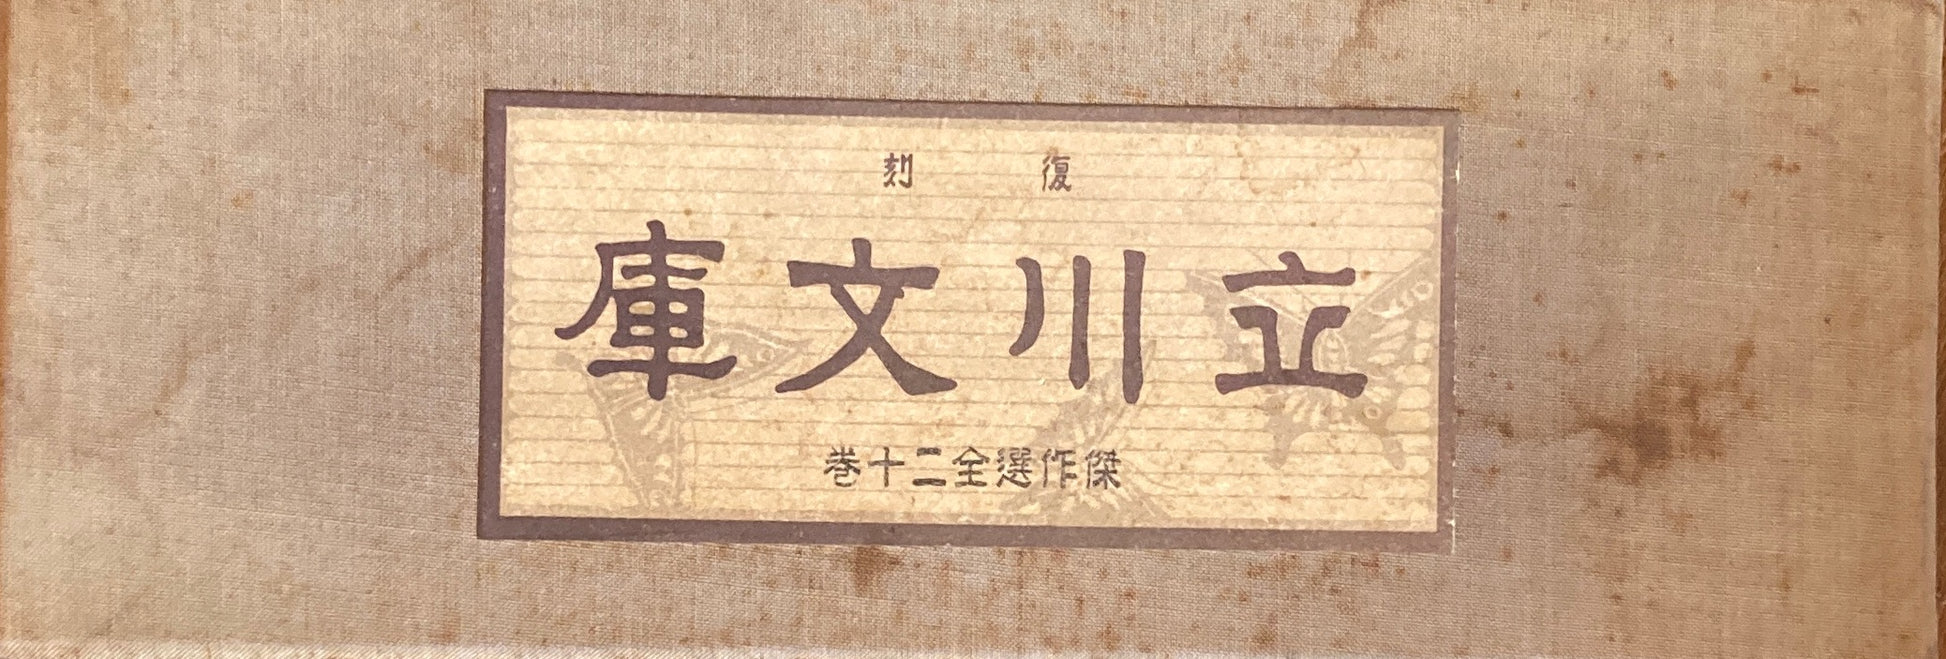 復刻
立川文庫
傑作選全二十巻